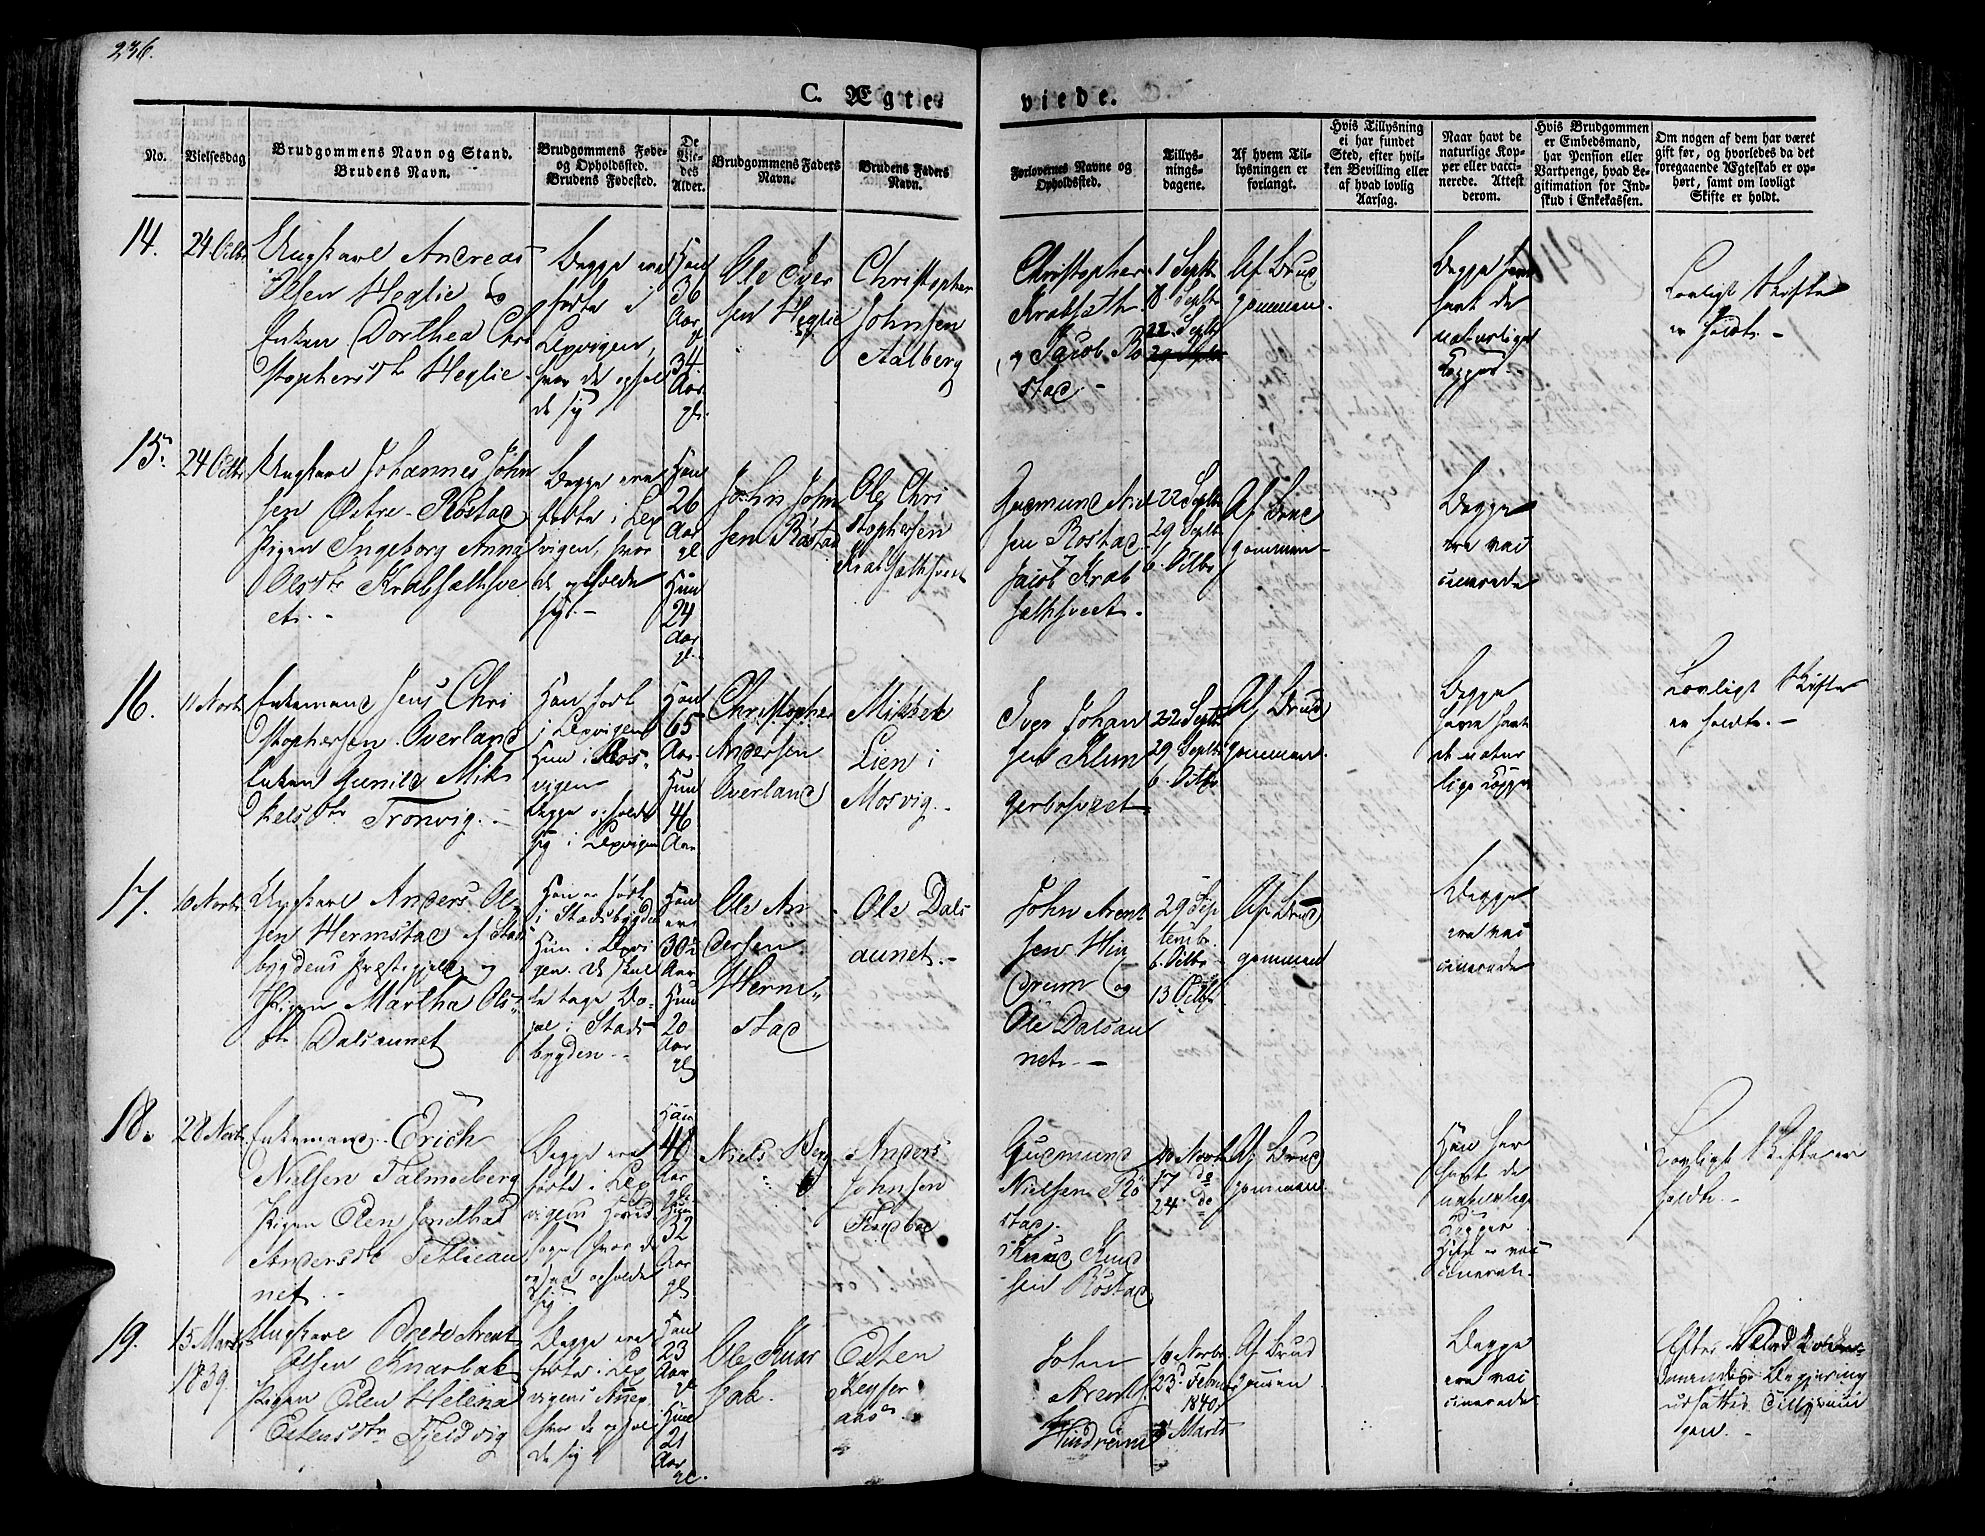 236.
C. Ægte-
viede.
No.
Vielsesdag
Brudgommens Navn og Stand.
Brudens Navn.
Brudgommens Føde-
og Opholdssted.
Brudens Fødested.
De
Vie-
des
Alder.
Brudgommens Faders
Navn.
Brudens Faders
Navn.
Forlovernes Navne og
Opholdssted.
Tillys-
nings-
dagene.
Af hvem Til-
lysningen er
forlangt.
Hvis Tillysning
ei har fundet
Sted, efter hvil-
ken Bevilling eller
af hvad lovlig
Aarsag.
Naar havt de
naturlige Kop-
per eller vacci-
nerede. Attest
derom.
Hvis Brudgommen
er Embedsmand,
har Pension eller
Vartpenge, hvad Le-
gitimation for Ind-
skud i Enkekassen.
Om nogen af dem har været
gift før, og hvorledes da det
foregaaende Ægteskab er op-
hørt, samt om lovligt
Skifte er holdt.
14.
24 Octbr
Ungkarl Andreas
Olsen Heglie og
Enken Dorthea Chri
stophersdtr Heglie.
Begge ere
fødte i
Lexvigen,
hvor de ophol
de sig
Han
36
Aar
gl.
34
Aar
gl.
Ole Iver
sen Heglie
Christopher
Johnsen
Aalberg
Christopher
Krabsæth
og Jacob Rø
stad -
1 Septbr
8 Septbr
22 Septbr
29 Septbr
Af Brud
gommen.
Begge have
havt de
naturlige
Kopper.
Lovligt Skifte
er holdt. -
15.
24 Octbr
Ungkarl Johannes John
sen Østre-Røstad
Pigen Ingeborg Anna
Olsdtr Krabsæthsve
et. -
Begge ere
fødte i Lex
vigen, hvor
de opholde
sig. -
Han
26
Aar
gl.
Hun
24
Aar
gl.
John John
sen Røstad
Ole Chri
stophersen
Krabsæthsveet
Gudmund And
sen Røstad
Jacob Krab
sæthsveet.
22 Septbr
29 Septbr
6. Octbr
Af Brud
gommen
Begge
ere vac
cinerede
16.
11 Novbr
Enkemand Jens Chri
stophersen Overland
Enken Gunild Mik
kelsdtr Tronvig. -
Han født
i Lexvigen
Hun i Mos-
vigen
Begge opholde
sig i Lexvigen
Han
65
Aar
Hun
46
Aar
Christopher
Andersen
Overland
Mikkel
Lien i
Mosvig. -
Iver Johan
sen Klun
gerbosveet
22 Septbr
29 Septbr
6. Octbr
Af Brud
gommen.
Begge
have havt
de natur
lige Kopper
Lovligt Skifte
er holdt. -
17.
10 Novbr
Ungkarl Anders Ol
sen Hermstad af Stads
bygdens Præstegjeld og
Pigen Martha Ols
dtr Dalsaunet
Han er født
i Stadsbygden
Hun i Lexvi
gen. De skul
le tage Bo-
pæl i Stads
bygden. -
Han
30
Aar
Hun
20
Aar
gl
Ole An
dersen
Herm-
stad
Ole Dals
aunet. -
John Arent
sen Hin
drum og
Ole Dalsau
net. -
29 Sep
tembr.
6. Octbr
13 Octbr
Af Brud
gommen
Begge
ere vac
cinerede
18.
28 Novbr
Enkemand Erich
Nielsen Salmeberg
Pigen Elen Jondhai
Andersdtr Tetlieau
net. -
Begge ere
fødte i Lex
vigens Hoved
Sogn, hvor de
ogsaa opholde
sig
Han
Aar
gl.
Hun
32
Aar
gl
Niels Berg
Anders
Johnsen
Gudmund
Nielsen Rø
stad.
Knud Knud
sen Røstad
10 Novbr
17 do
24. do
Af Brud
gommen.
Han har
havt de
naturlige
Kopper
Hun er vac
cineret.
Lovligt Skifte er
holdt. -
19.
15 Marts
1839
Ungkarl Arent
Olsen Knarbak
Pigen Elen Helena
Estensdtr Fjeldvig
Begge ere
fødte i Lex
vigens Annex
hvor de ophol
de sig
Han
23
Aar
gl
Hun
21
Aar
gl.
Ole Knar
bak.
Esten
Keyser
aas
John
Arent
Hindrem
10 Novbr.
23. Februar
1840.
Marts
Af Brud
gommen
Begge
ere vac
cinerede
Efter
Begjering
udsattes Tillysnin
gen. -